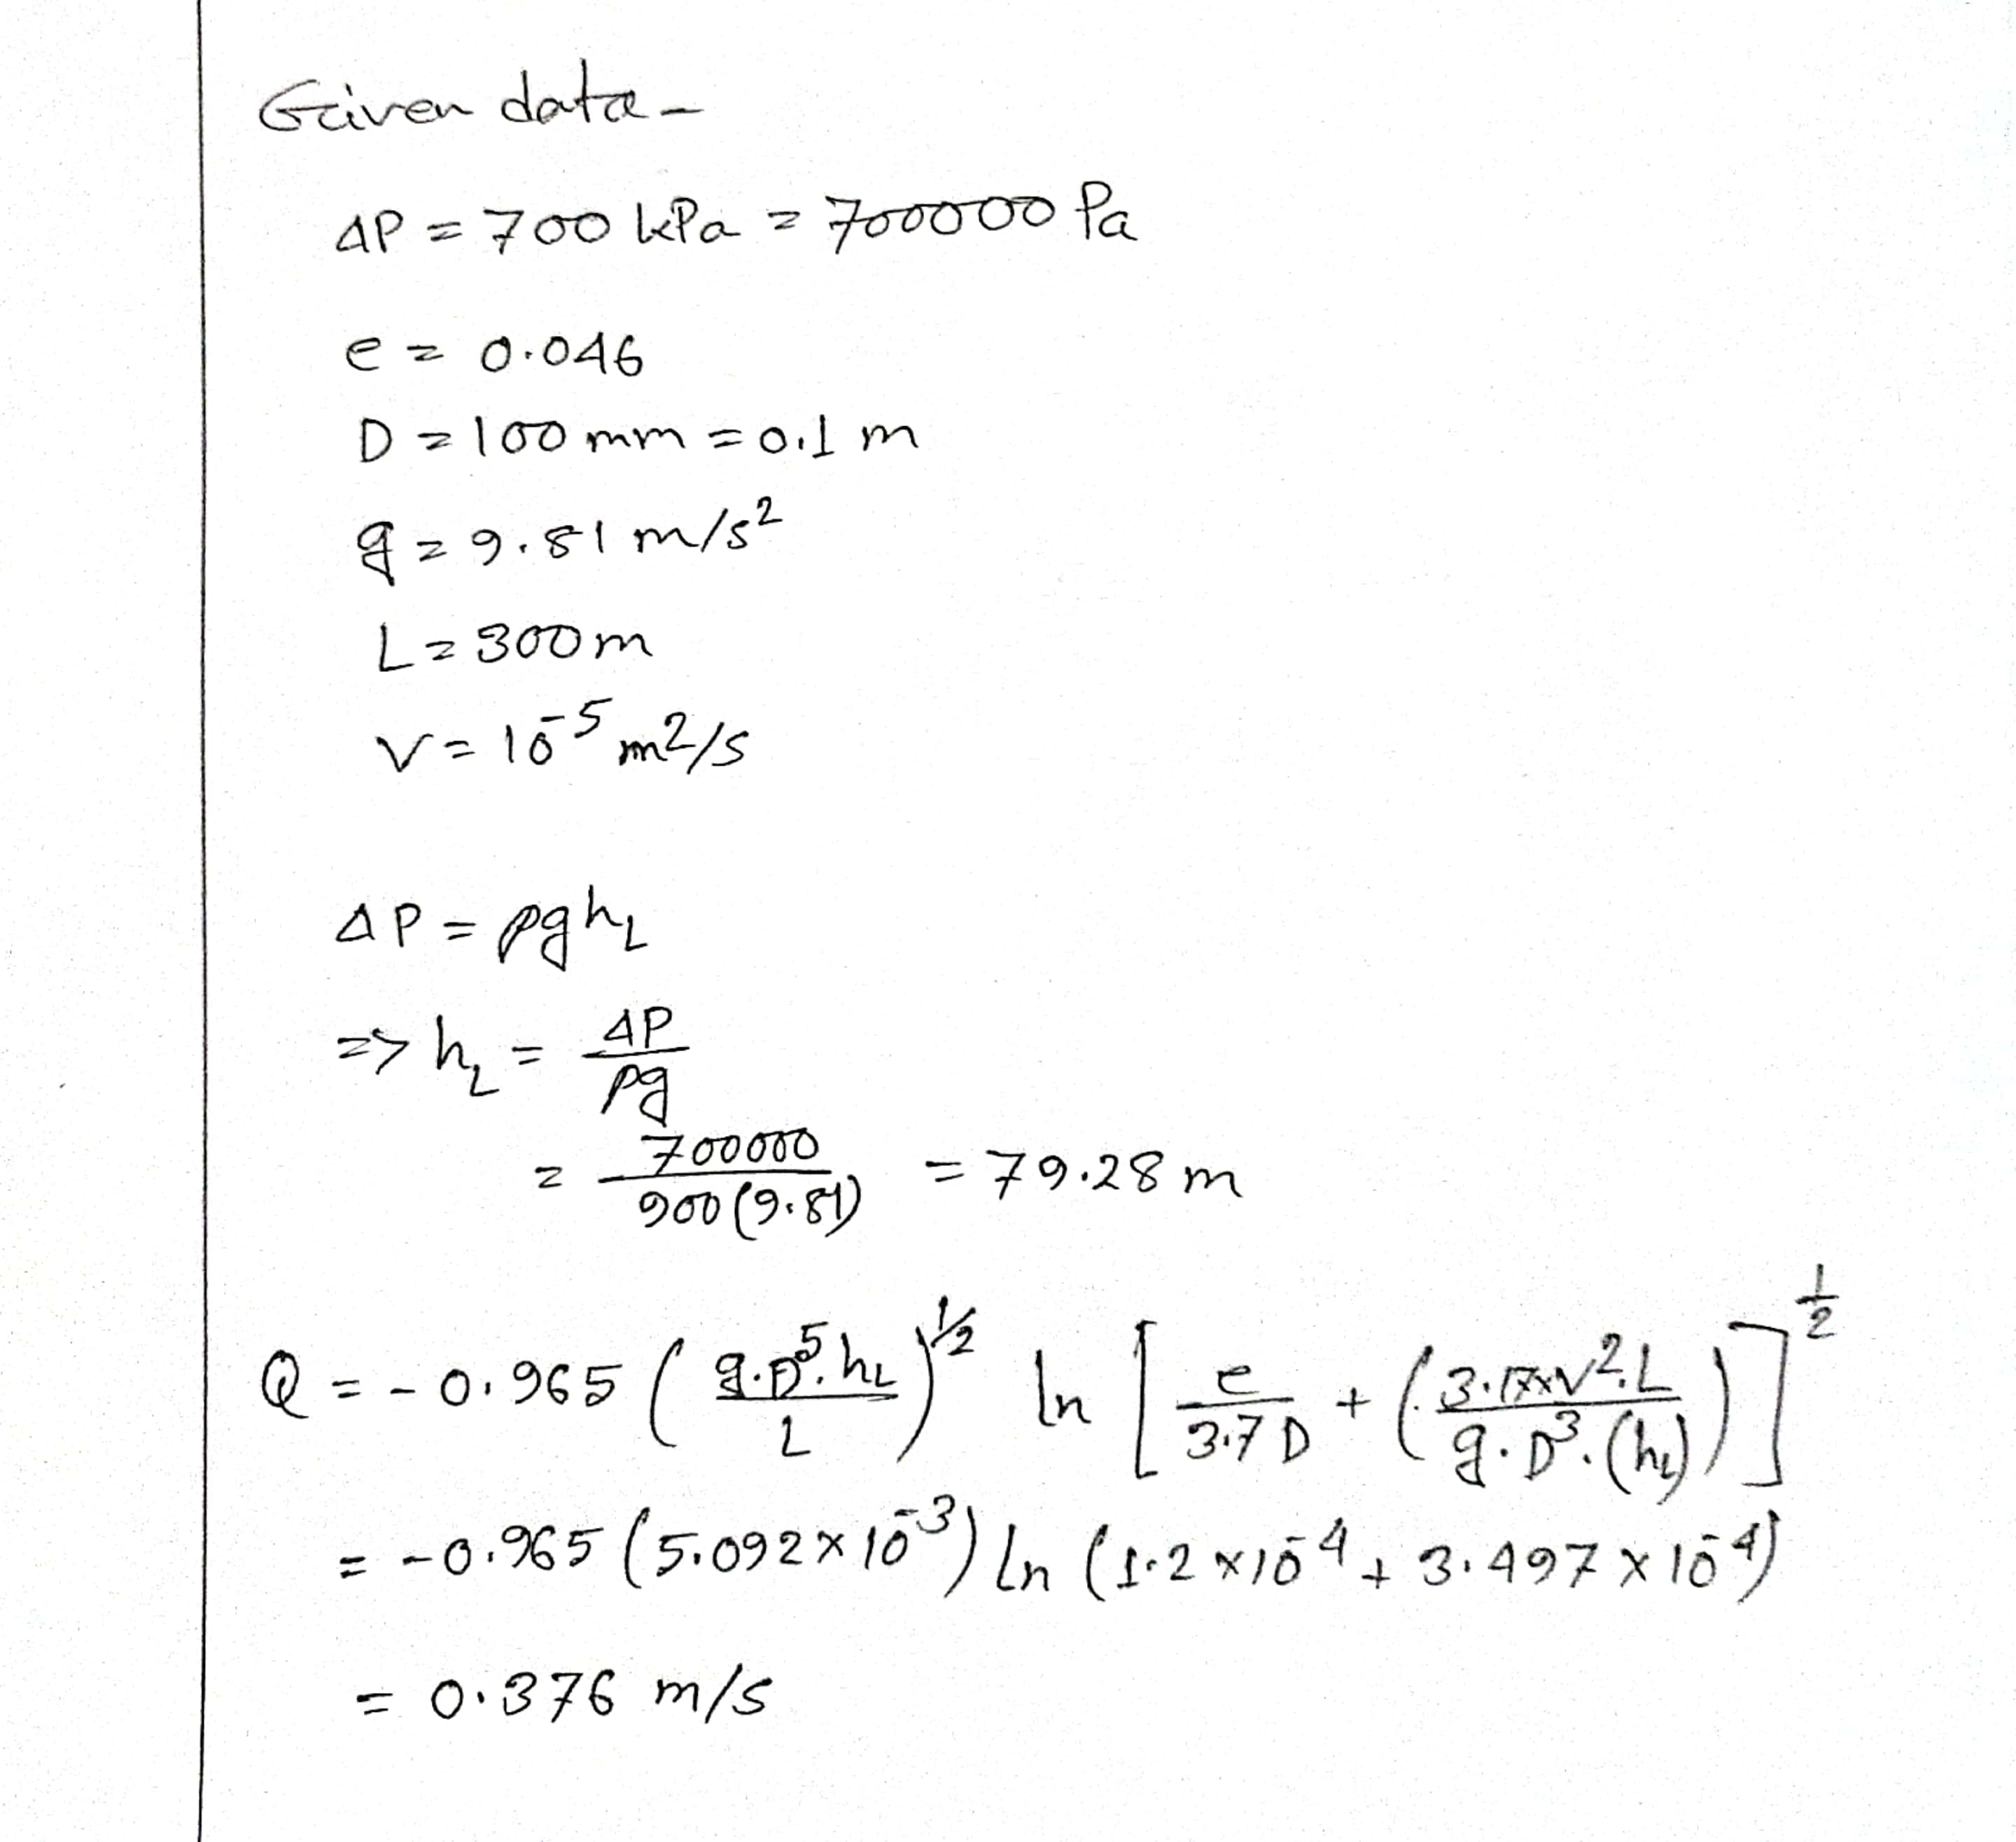 Given data -
ΔP = 700 kPa = 700000 Pa
e = 0.046
D = 100 mm = 0.1 m
g = 9.81 m/s²
L = 300m
ν = 10⁻⁵ m²/s
ΔP = ρgh_L
=> h_L = ΔP / ρg
= 700000 / 900(9.81) = 79.28 m
Q = -0.965 (g.D⁵.h_L / L)^1/2 ln [e / 3.7D + (3.17×ν².L / g.D³.(h_L))]^1/2
= -0.965 (5.092×10⁻³) ln (1.2×10⁻⁴ + 3.497×10⁻⁴)
= 0.376 m/s